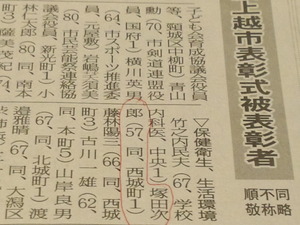 上越市表彰式被表彰者
順不同
敬称略
子ども会育成協議会役員
等、頸城区中柳町)青山
勲(70、市剣道連盟役
員、国府1)横川英男
(64、市スポーツ推進委
員、元屋敷)岩嶋
(80、市民芸能祭連絡協
議会役員、新光町1)小
林仁太郎(80、同、南本
町3)
▽保健衛生、生活環境
竹之内民夫(67、学校
内科医、中央1)塚田次
郎(57、同、西城町1)
藤林陽三(66、同、西城
町3)古川一雄(62、
同、本町5)山岸良男
(67、同、北城町1)渡
邉雅晴(67、同、大潟区